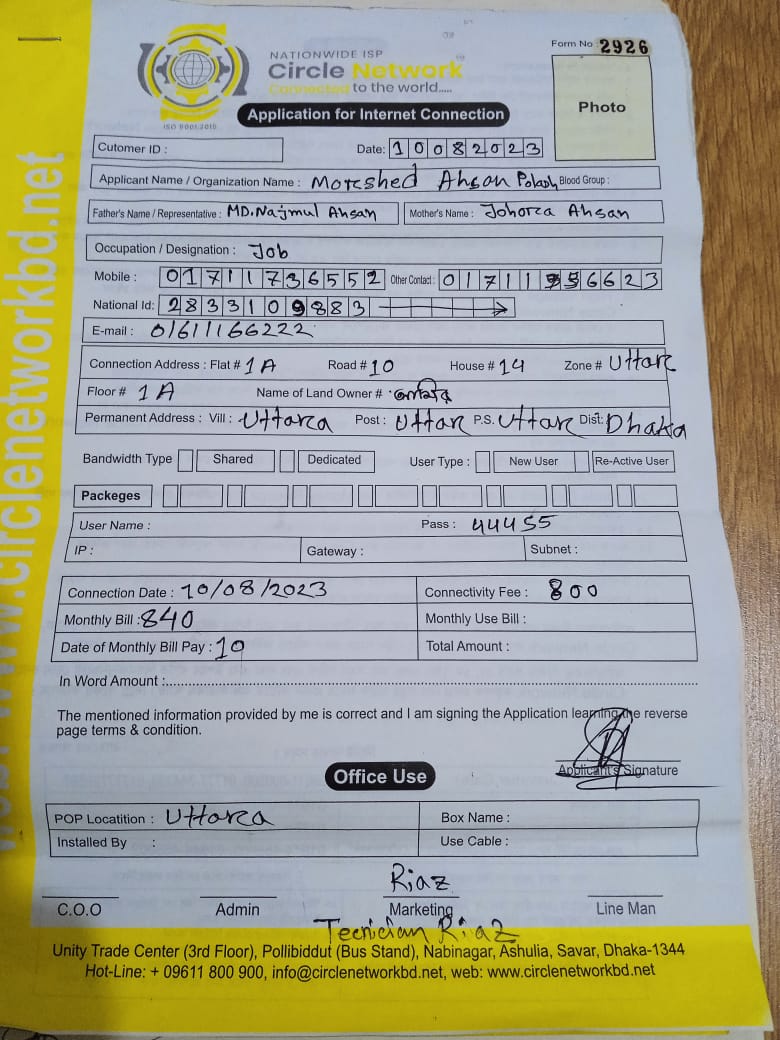 NATIONWIDE ISP
Circle Network
Connected to the world.....
ISO 9001:2015
Form No : 2926
Application for Internet Connection
Photo
Cutomer ID :
Date: 10082023
Applicant Name / Organization Name : Morshed Ahsan Polash Blood Group :
Father's Name / Representative : MD. Najmul Ahsan Mother's Name : Johora Ahsan
Occupation / Designation : Job
Mobile : 01711736552 Other Contact : 01711 56623
National Id: 2833109883
E-mail : 01611166222
Connection Address : Flat # 1A Road # 10 House # 14 Zone # Uttar
Floor # 1A Name of Land Owner #
Permanent Address : Vill : Uttara Post : Uttar P.S. Uttar Dist: Dhaka
Bandwidth Type Shared Dedicated User Type : New User Re-Active User
Packeges
User Name : Pass : 44455
IP : Gateway : Subnet :
Connection Date : 10/08/2023 Connectivity Fee : 800
Monthly Bill : 840 Monthly Use Bill :
Date of Monthly Bill Pay : 10 Total Amount :
In Word Amount :
The mentioned information provided by me is correct and I am signing the Application learning the reverse
page terms & condition.
Applicant's Signature
Office Use
POP Locatition : Uttara Box Name :
Installed By : Use Cable :
Riaz
C.O.O Admin Marketing Line Man
Tecnician Riaz
Unity Trade Center (3rd Floor), Pollibiddut (Bus Stand), Nabinagar, Ashulia, Savar, Dhaka-1344
Hot-Line: + 09611 800 900, info@circlenetworkbd.net, web: www.circlenetworkbd.net
www.circlenetworkbd.net